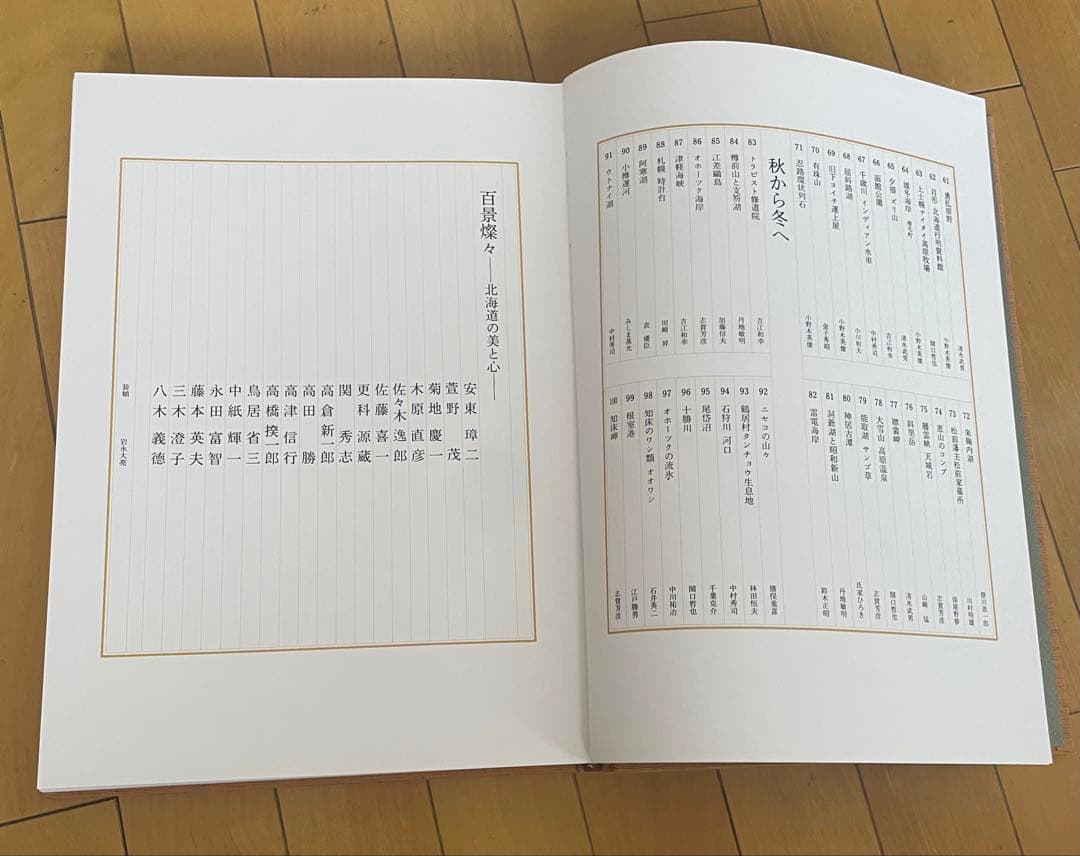 61 勇払原野 清水武男
62 月形 北海道行刑資料館 小野木英俊
63 上士幌ナイタイ高原牧場 関口哲也
64 雄冬海岸 増毛町 小野木英俊
65 夕張 ズリ山 清水武男
66 函館公園 吉江和幸
67 千歳川 インディアン水車 中村秀司
68 屈斜路湖 小川和夫
69 旧下ヨイチ運上屋 小野木英俊
70 有珠山 金子秀昭
71 忍路環状列石 小野木英俊
72 朱鞠内湖 掛川源一郎
73 松前藩主松前家墓所 川村明雄
74 恵山のコンブ
75 層雲峡 天城岩 志賀芳彦
76 斜里岳 山崎 猛
77 襟裳岬 清水武男
78 大雪山 高原温泉 関口哲也
79 能取湖 サンゴ草 志賀芳彦
80 神居古潭 氏家ひろき
81 洞爺湖と昭和新山 丹地敏明
82 雷電海岸 鈴木正昭
秋から冬へ
83 トラピスト修道院 吉江和幸
84 樽前山と支笏湖 丹地敏明
85 江差鷗島 加藤信夫
86 オホーツク海岸 志賀芳彦
87 津軽海峡 吉江和幸
88 札幌 時計台 田崎 昇
89 阿寒湖 表 優臣
90 小樽運河
91 ウトナイ湖 中村秀司
92 ニセコの山々 猪俣重喜
93 鶴居村タンチョウ生息地 林田恒夫
94 石狩川 河口 中村秀司
95 尾岱沼 千葉克介
96 十勝川 関口哲也
97 オホーツクの流氷 中川祐治
98 知床のワシ類 オオワシ 石井英二
99 根室港 江戸勝男
100 知床岬 志賀芳彦
百景燦々――北海道の美と心――
安東璋二
萱野茂
菊地慶一
木原直彦
佐々木逸郎
佐藤喜一
更科源蔵
関秀志
高倉新一郎
高田勝
高津信行
高橋揆一郎
鳥居省三
中紙輝一
永田富智
藤本英夫
三木澄子
八木義徳
装幀 岩永大亮